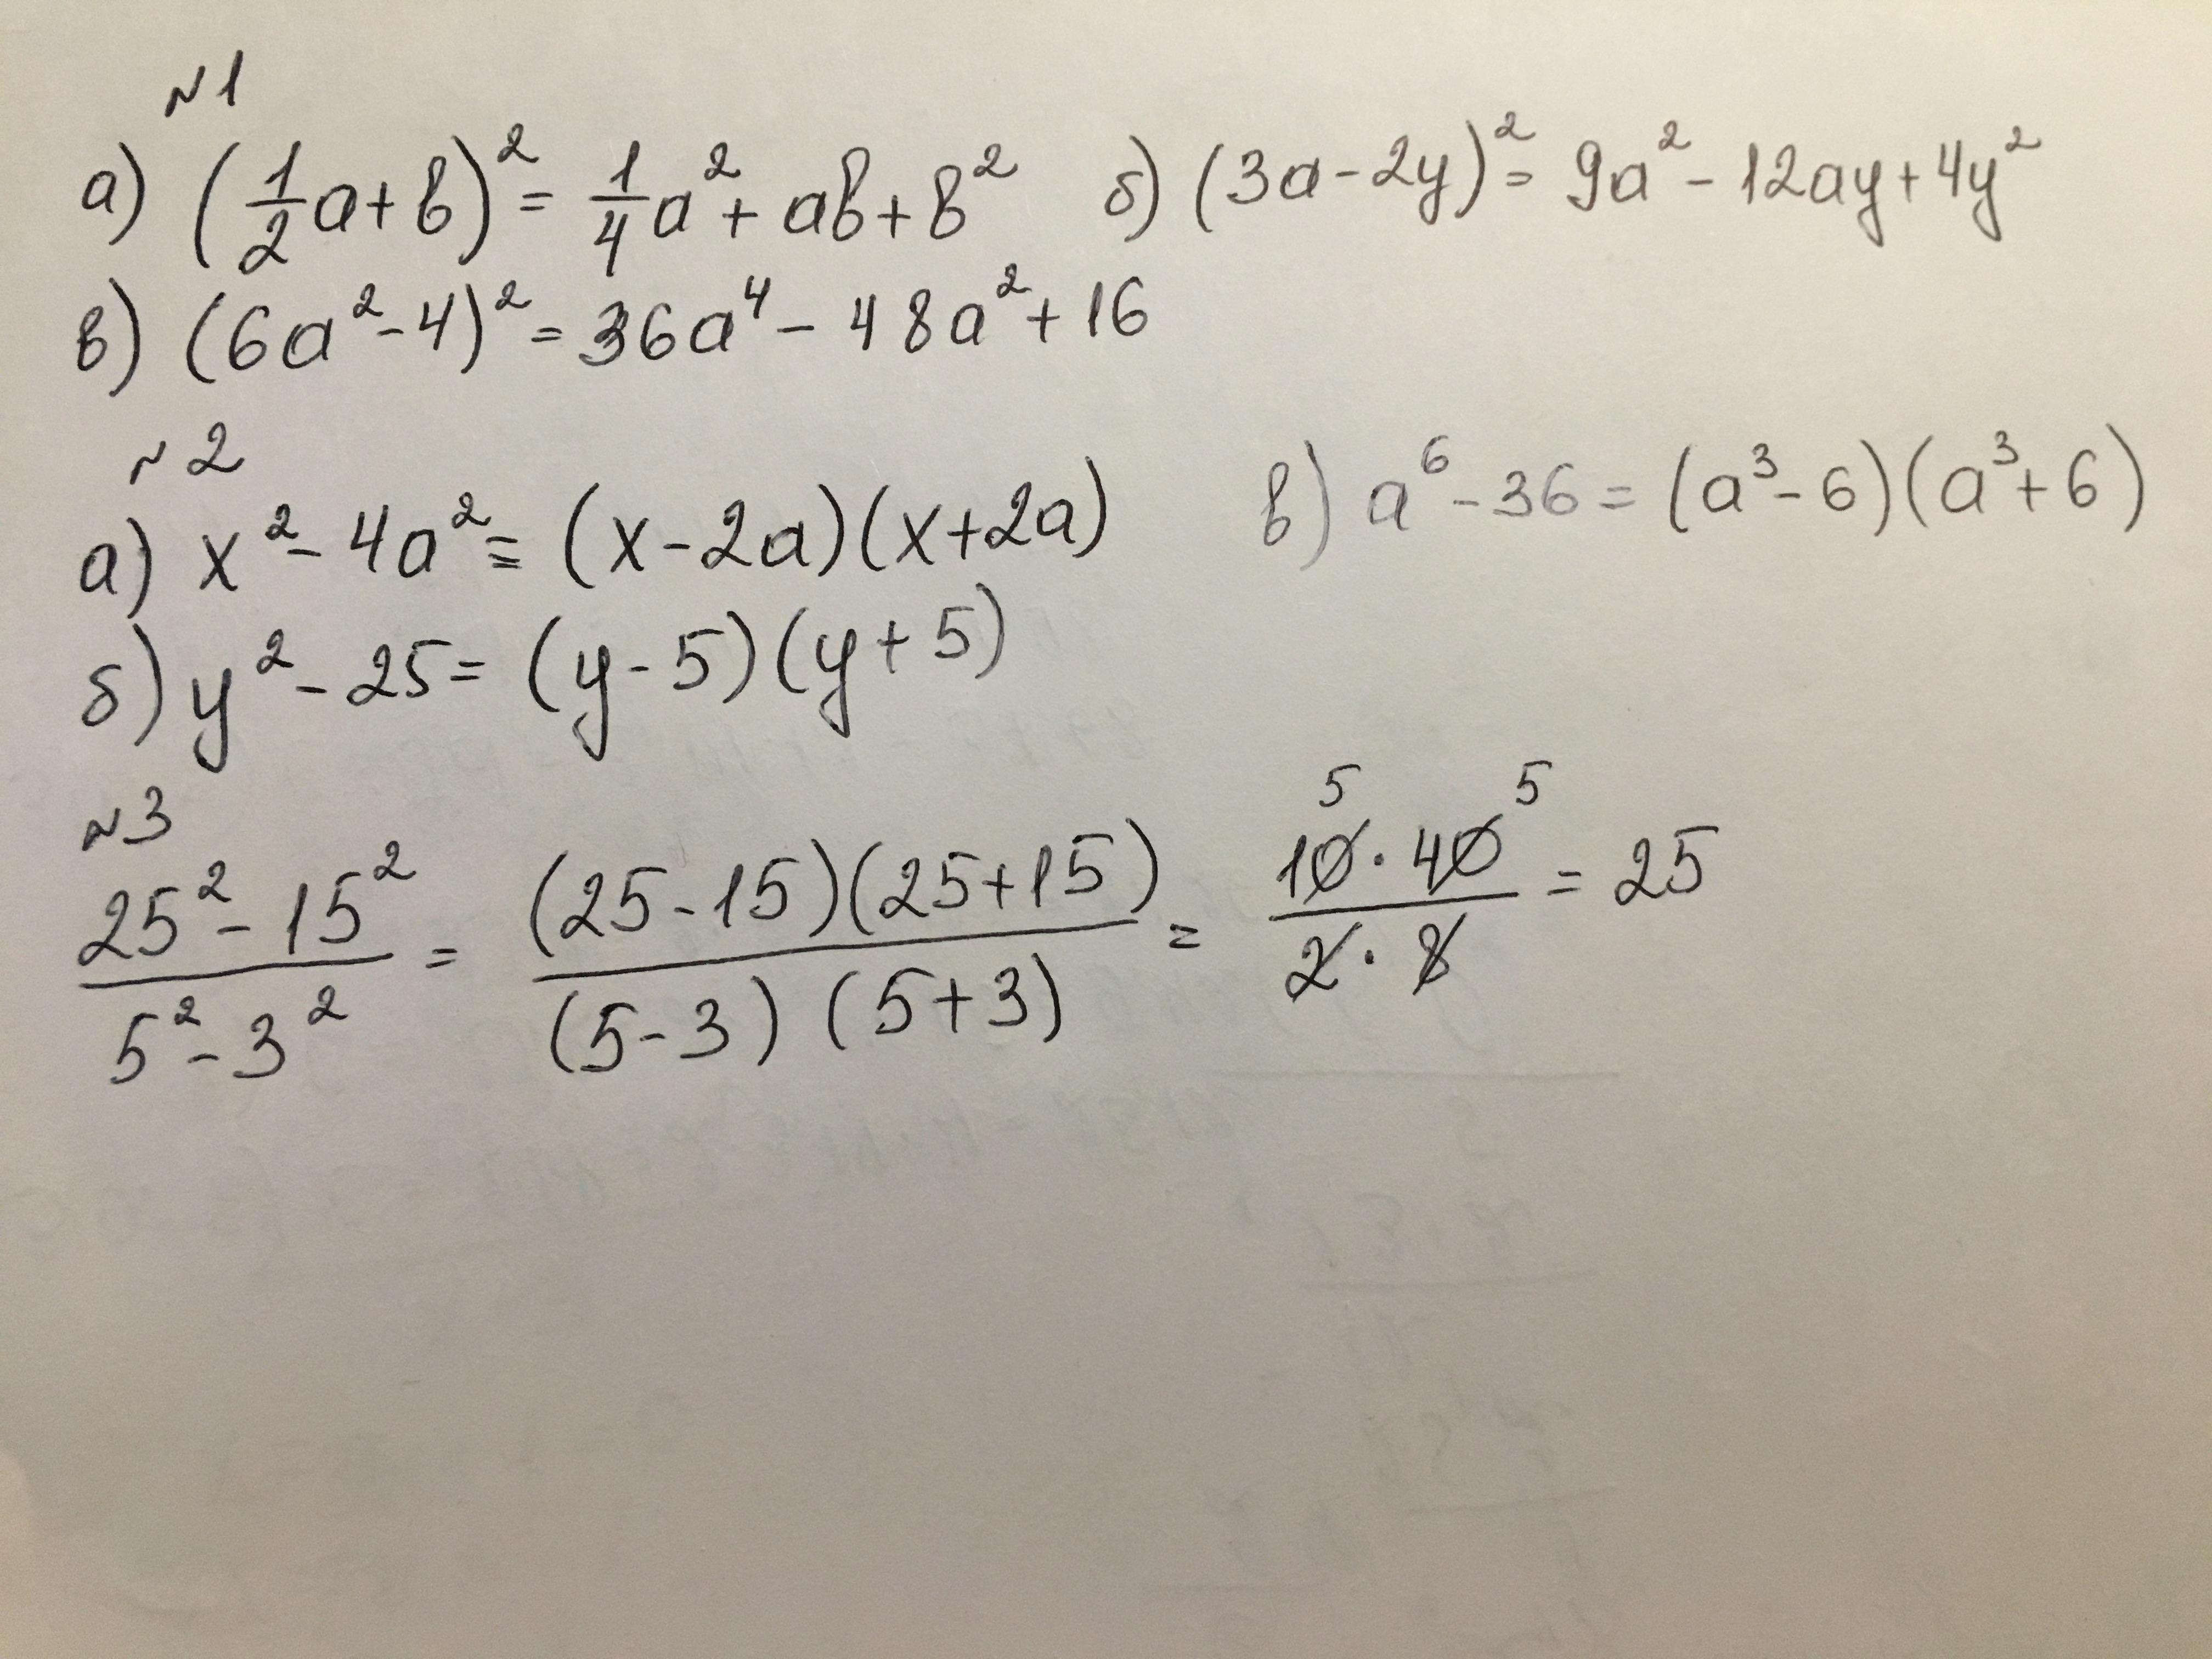 №1
а) (1/2 a + b)² = 1/4 a² + ab + b² б) (3a - 2y)² = 9a² - 12ay + 4y²
в) (6a² - 4)² = 36a⁴ - 48a² + 16
№2
а) x² - 4a² = (x - 2a)(x + 2a) в) a⁶ - 36 = (a³ - 6)(a³ + 6)
б) y² - 25 = (y - 5)(y + 5)
№3
(25² - 15²)/(5² - 3²) = ((25 - 15)(25 + 15))/((5 - 3)(5 + 3)) = (10⁵ · 40⁵)/(2 · 8) = 25